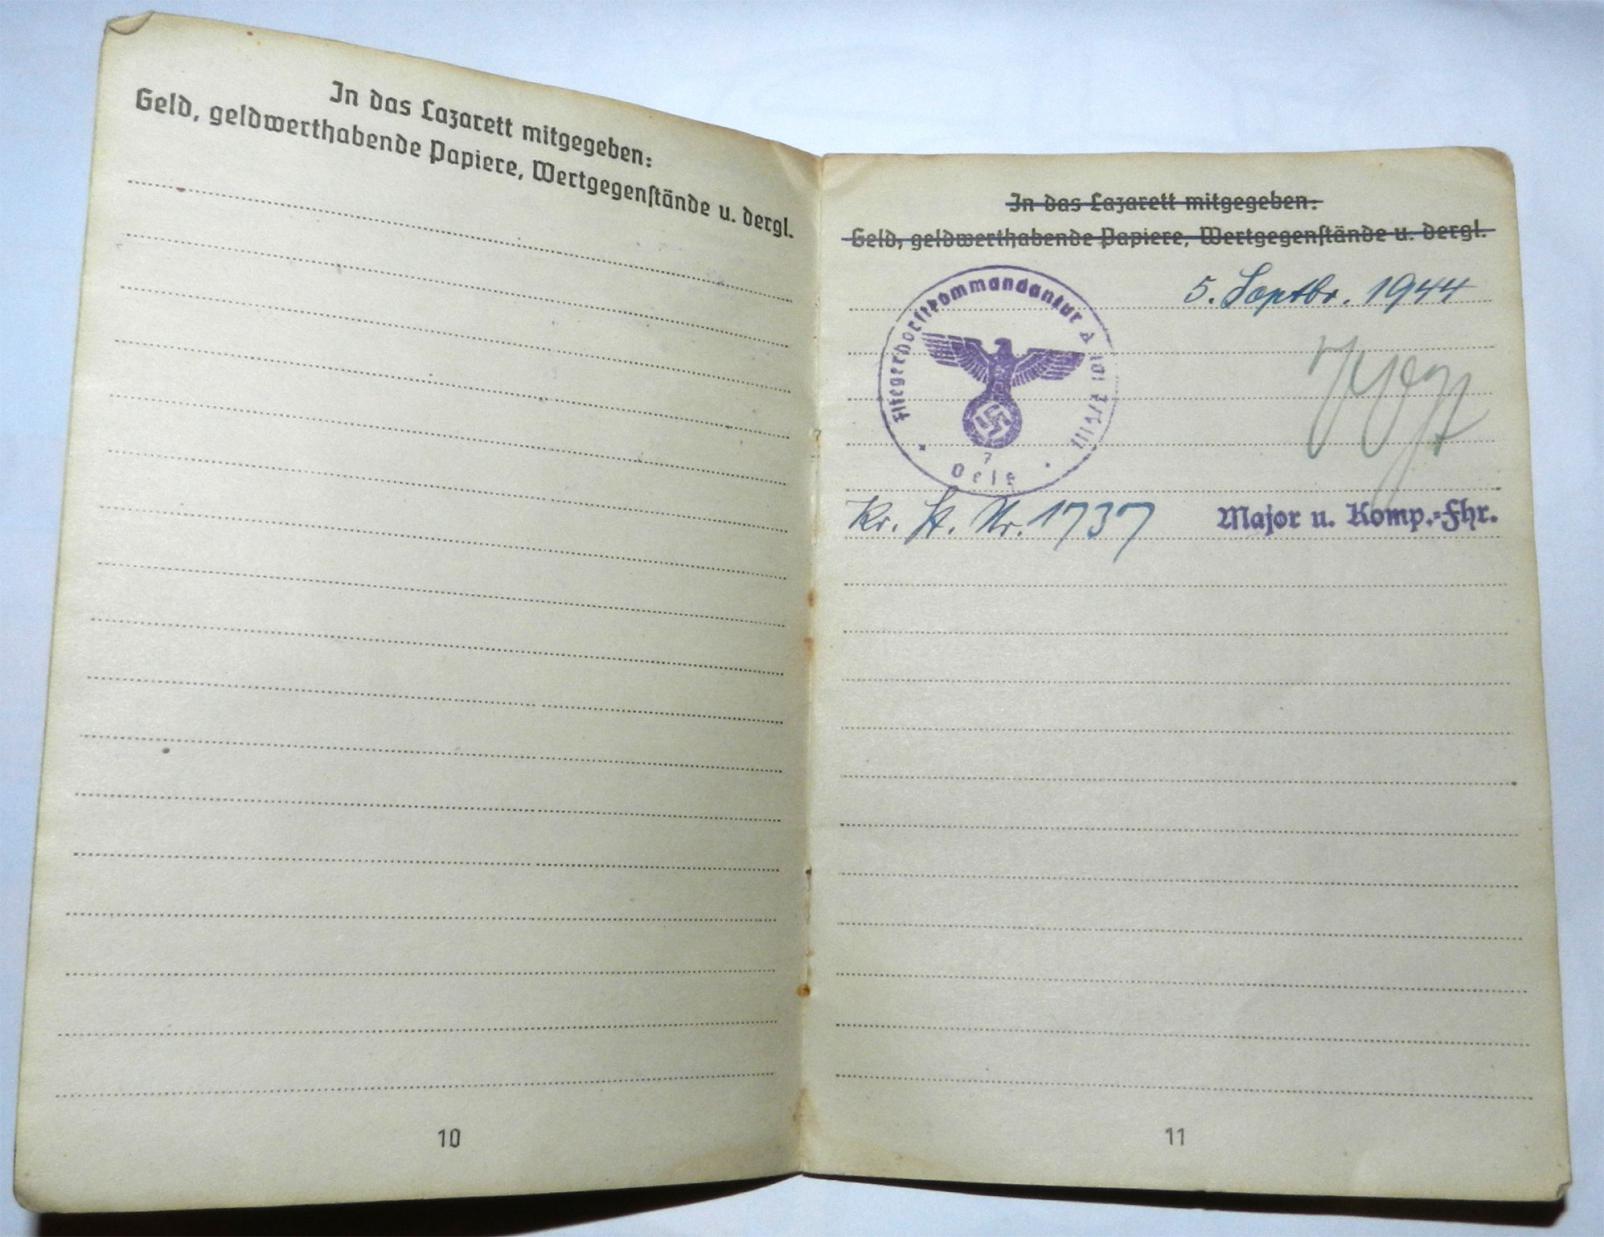 In das Lazarett mitgegeben:
Geld, geldwerthabende Papiere, Wertgegenstände u. dergl.
10
In das Lazarett mitgegeben:
Geld, geldwerthabende Papiere, Wertgegenstände u. dergl.
5. Septbr. 1944
Fliegerhorstkommandantur A
7
Oels
Kr. St. Nr. 1737
Major u. Komp.-Fhr.
11